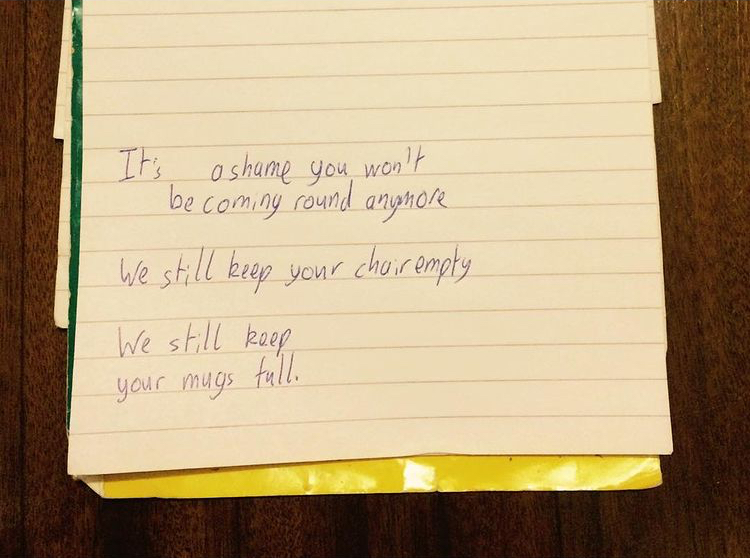 It's a shame you won't
be coming round anymore
We still keep your chair empty
We still keep
your mugs full.